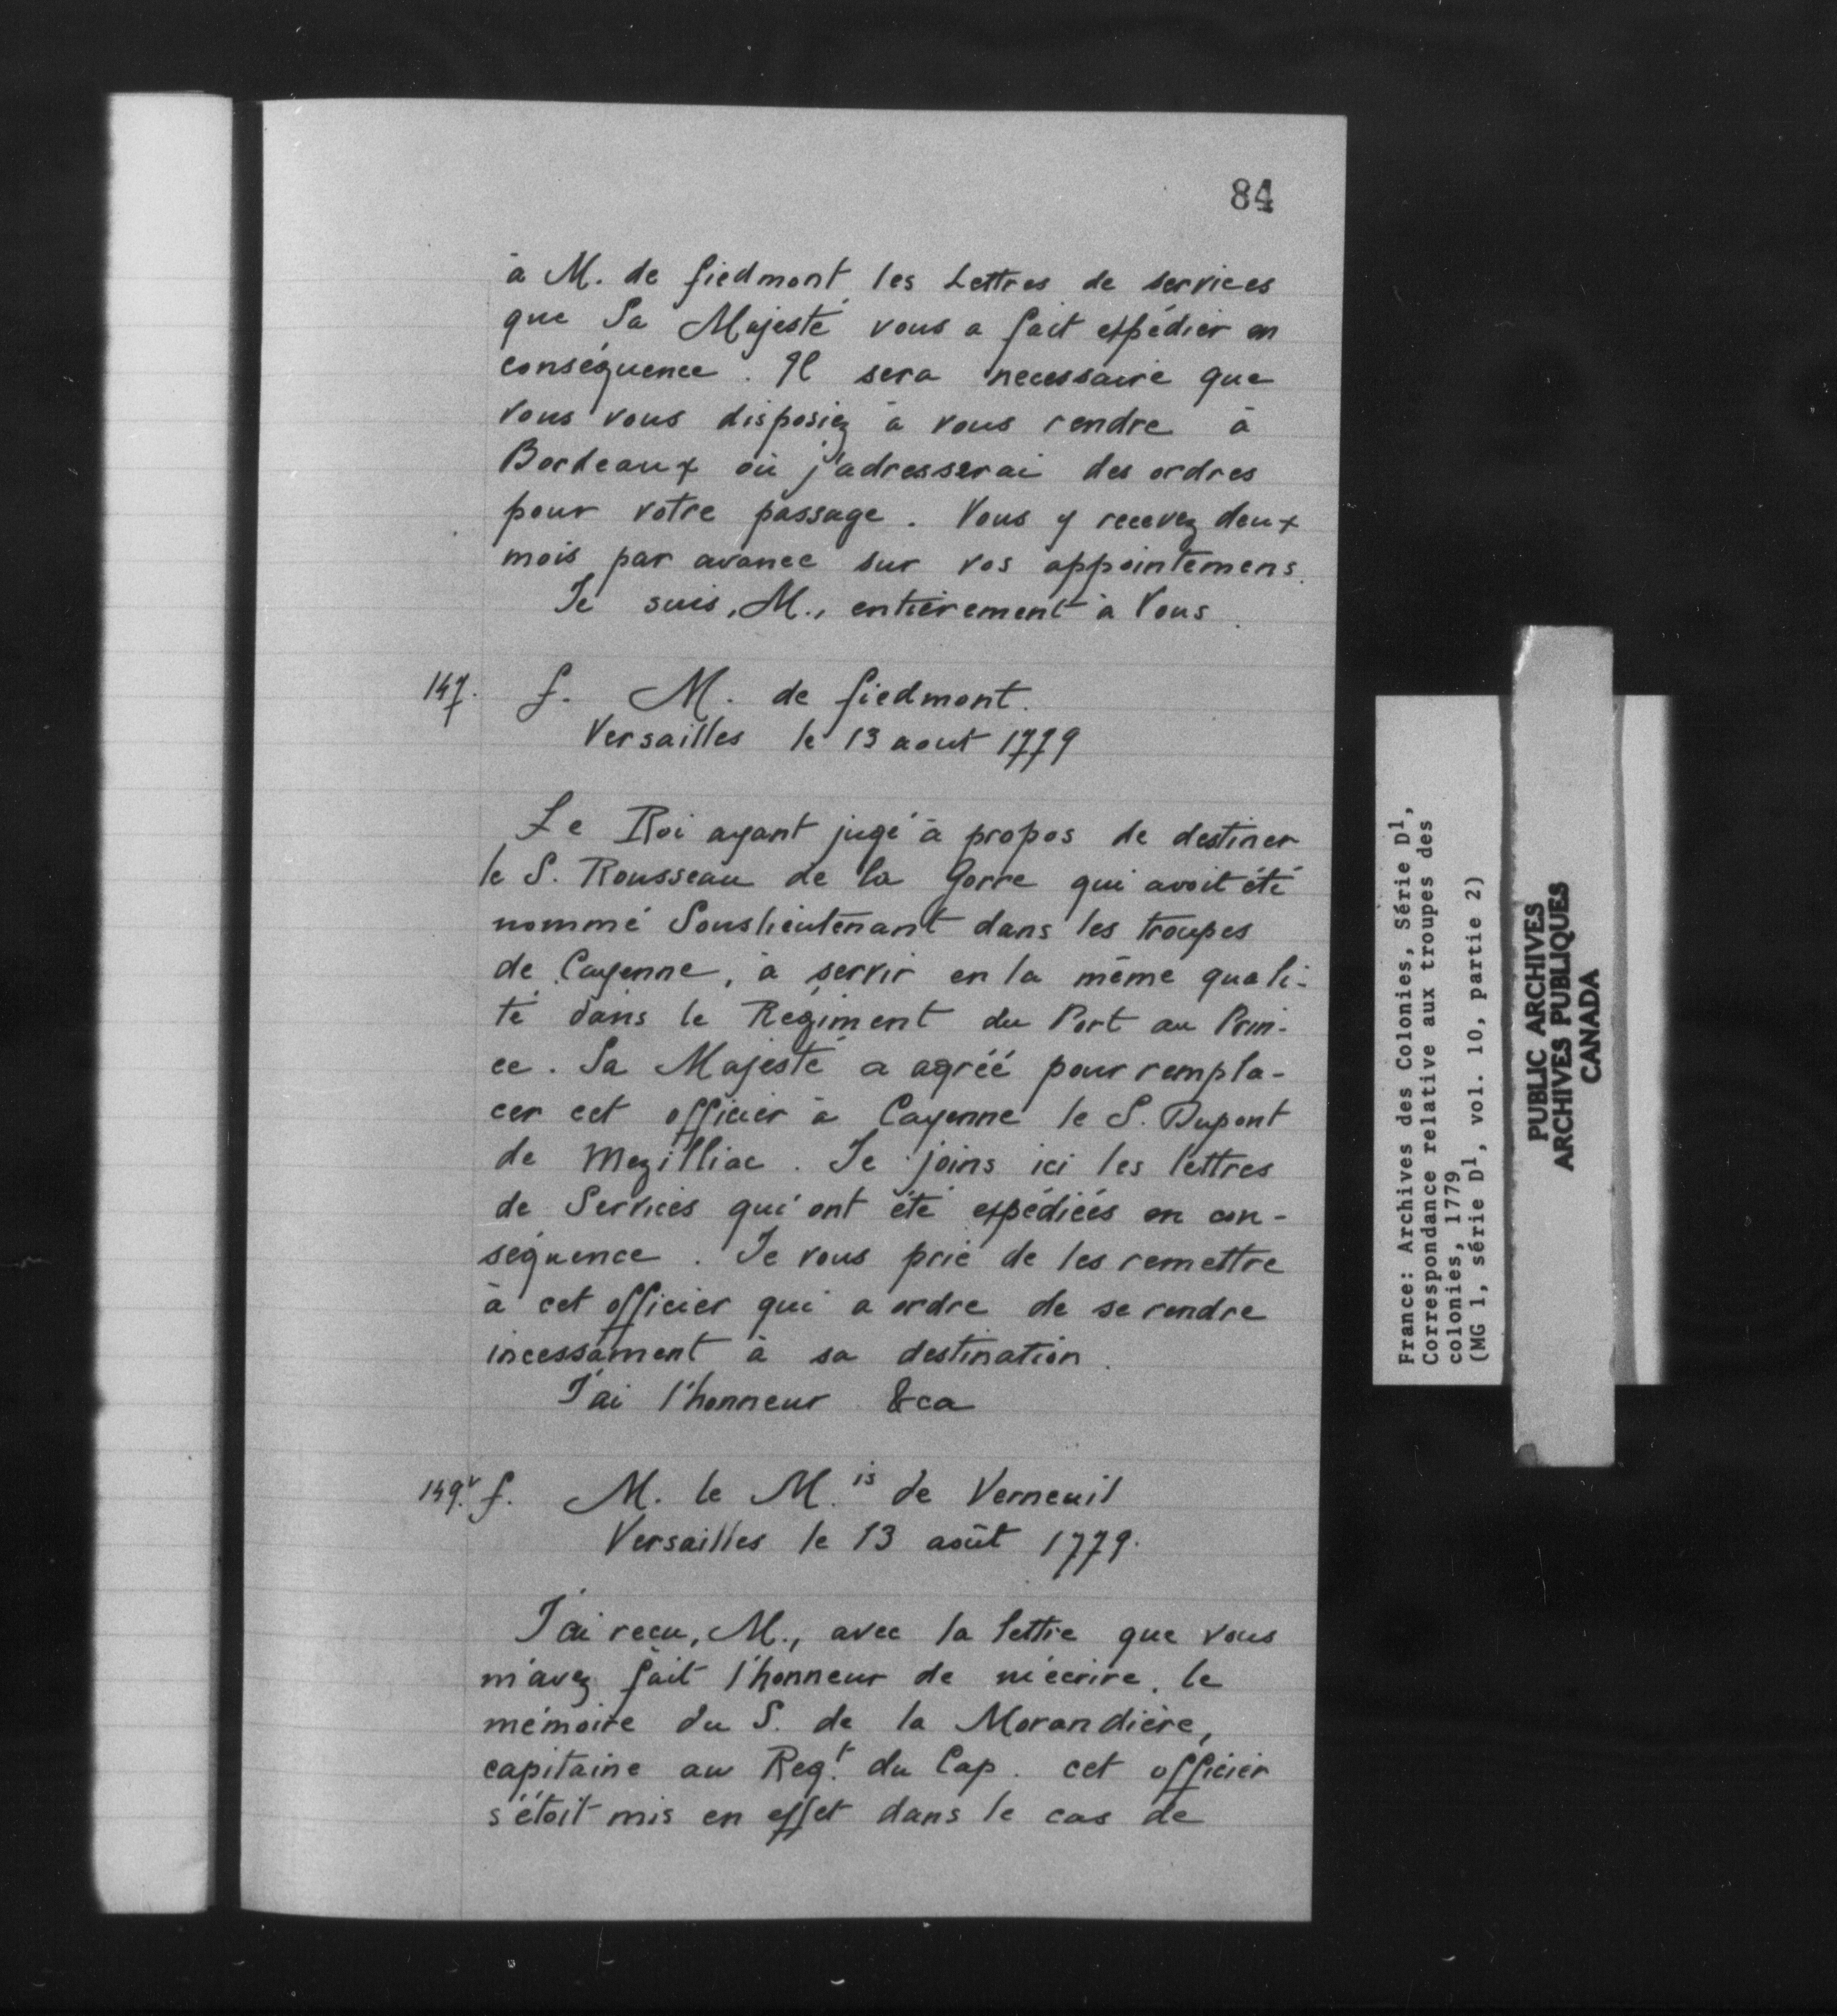 84
à M. de fiedmont les Lettres de services
que Sa Majesté vous a fait expédier en
conséquence. Il sera necessaire que
vous vous disposiez à vous rendre à
Bordeaux où j'adresserai des ordres
pour votre passage. Vous y recevez deux
mois par avance sur vos appointemens.
Je suis, M., entièrement à Vous.
147. f. M. de fiedmont.
Versailles le 13 aout 1779
Le Roi ayant jugé à propos de destiner
le S. Rousseau de la Gorre qui avoit été
nommé Souslieutenant dans les troupes
de Cayenne, à servir en la même quali-
té dans le Régiment du Port au Prin-
ce. Sa Majesté a agréé pour rempla-
cer cet officier à Cayenne le S. Dupont
de Mezilliac. Je joins ici les lettres
de Services qui ont été expédiées en con-
séquence. Je vous prie de les remettre
à cet officier qui a ordre de se rendre
incessament à sa destination.
J'ai l'honneur &ca
149.v f. M. le M.is de Verneuil
Versailles le 13 août 1779.
J'ai recu, M., avec la lettre que vous
m'avez fait l'honneur de m'écrire, le
mémoire du S. de la Morandière,
capitaine au Reg.t du Cap. cet officier
s'étoit mis en effet dans le cas de
France: Archives des Colonies, Série D1,
Correspondance relative aux troupes des
colonies, 1779
(MG 1, série D1, vol. 10, partie 2)
PUBLIC ARCHIVES
ARCHIVES PUBLIQUES
CANADA